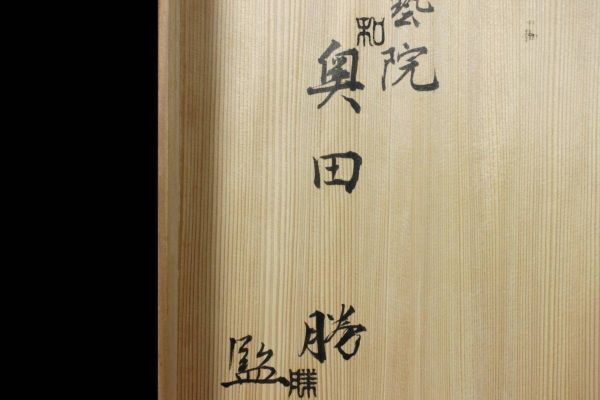 藝院
和
奥田
勝
勝
監